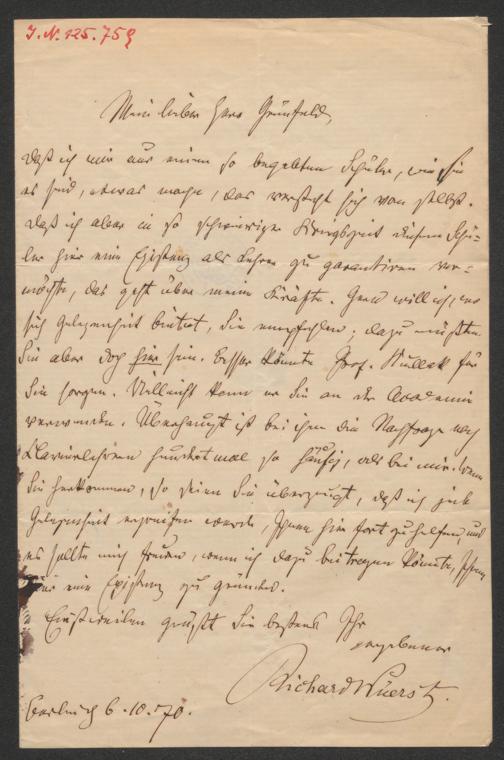 I. N. 125.759
Mein lieber Herr Grünfeld,
Daß ich mir aus einem so begabten Schüler, wie Sie
es sind, etwas mache, das versteht sich von selbst.
Daß ich aber in so schwieriger Kriegszeit diesem Schü-
ler hier eine Existenz als Lehrer zu garantiren ver-
möchte, das geht über meine Kräfte. Gern will ich, wo
sich Gelegenheit bietet, Sie empfehlen; dazu müßten
Sie aber doch hier sein. Besser könnte Prof. Kullak für
Sie sorgen. Vielleicht kann er Sie an der Academie
verwenden. Überhaupt ist bei ihm die Nachfrage nach
Klavierlehrern hundert mal so häufig, als bei mir. Wenn
Sie herkommen, so seien Sie überzeugt, daß ich jede
Gelegenheit ergreifen werde, Ihnen hier fort zu helfen, und
es sollte mich freuen, wenn ich dazu beitragen könnte, Ihnen
hier eine Existenz zu gründen.
Einstweilen grüßt Sie bestens Ihr
ergebener
Richard Wüerst.
Berlin 6.10.70.